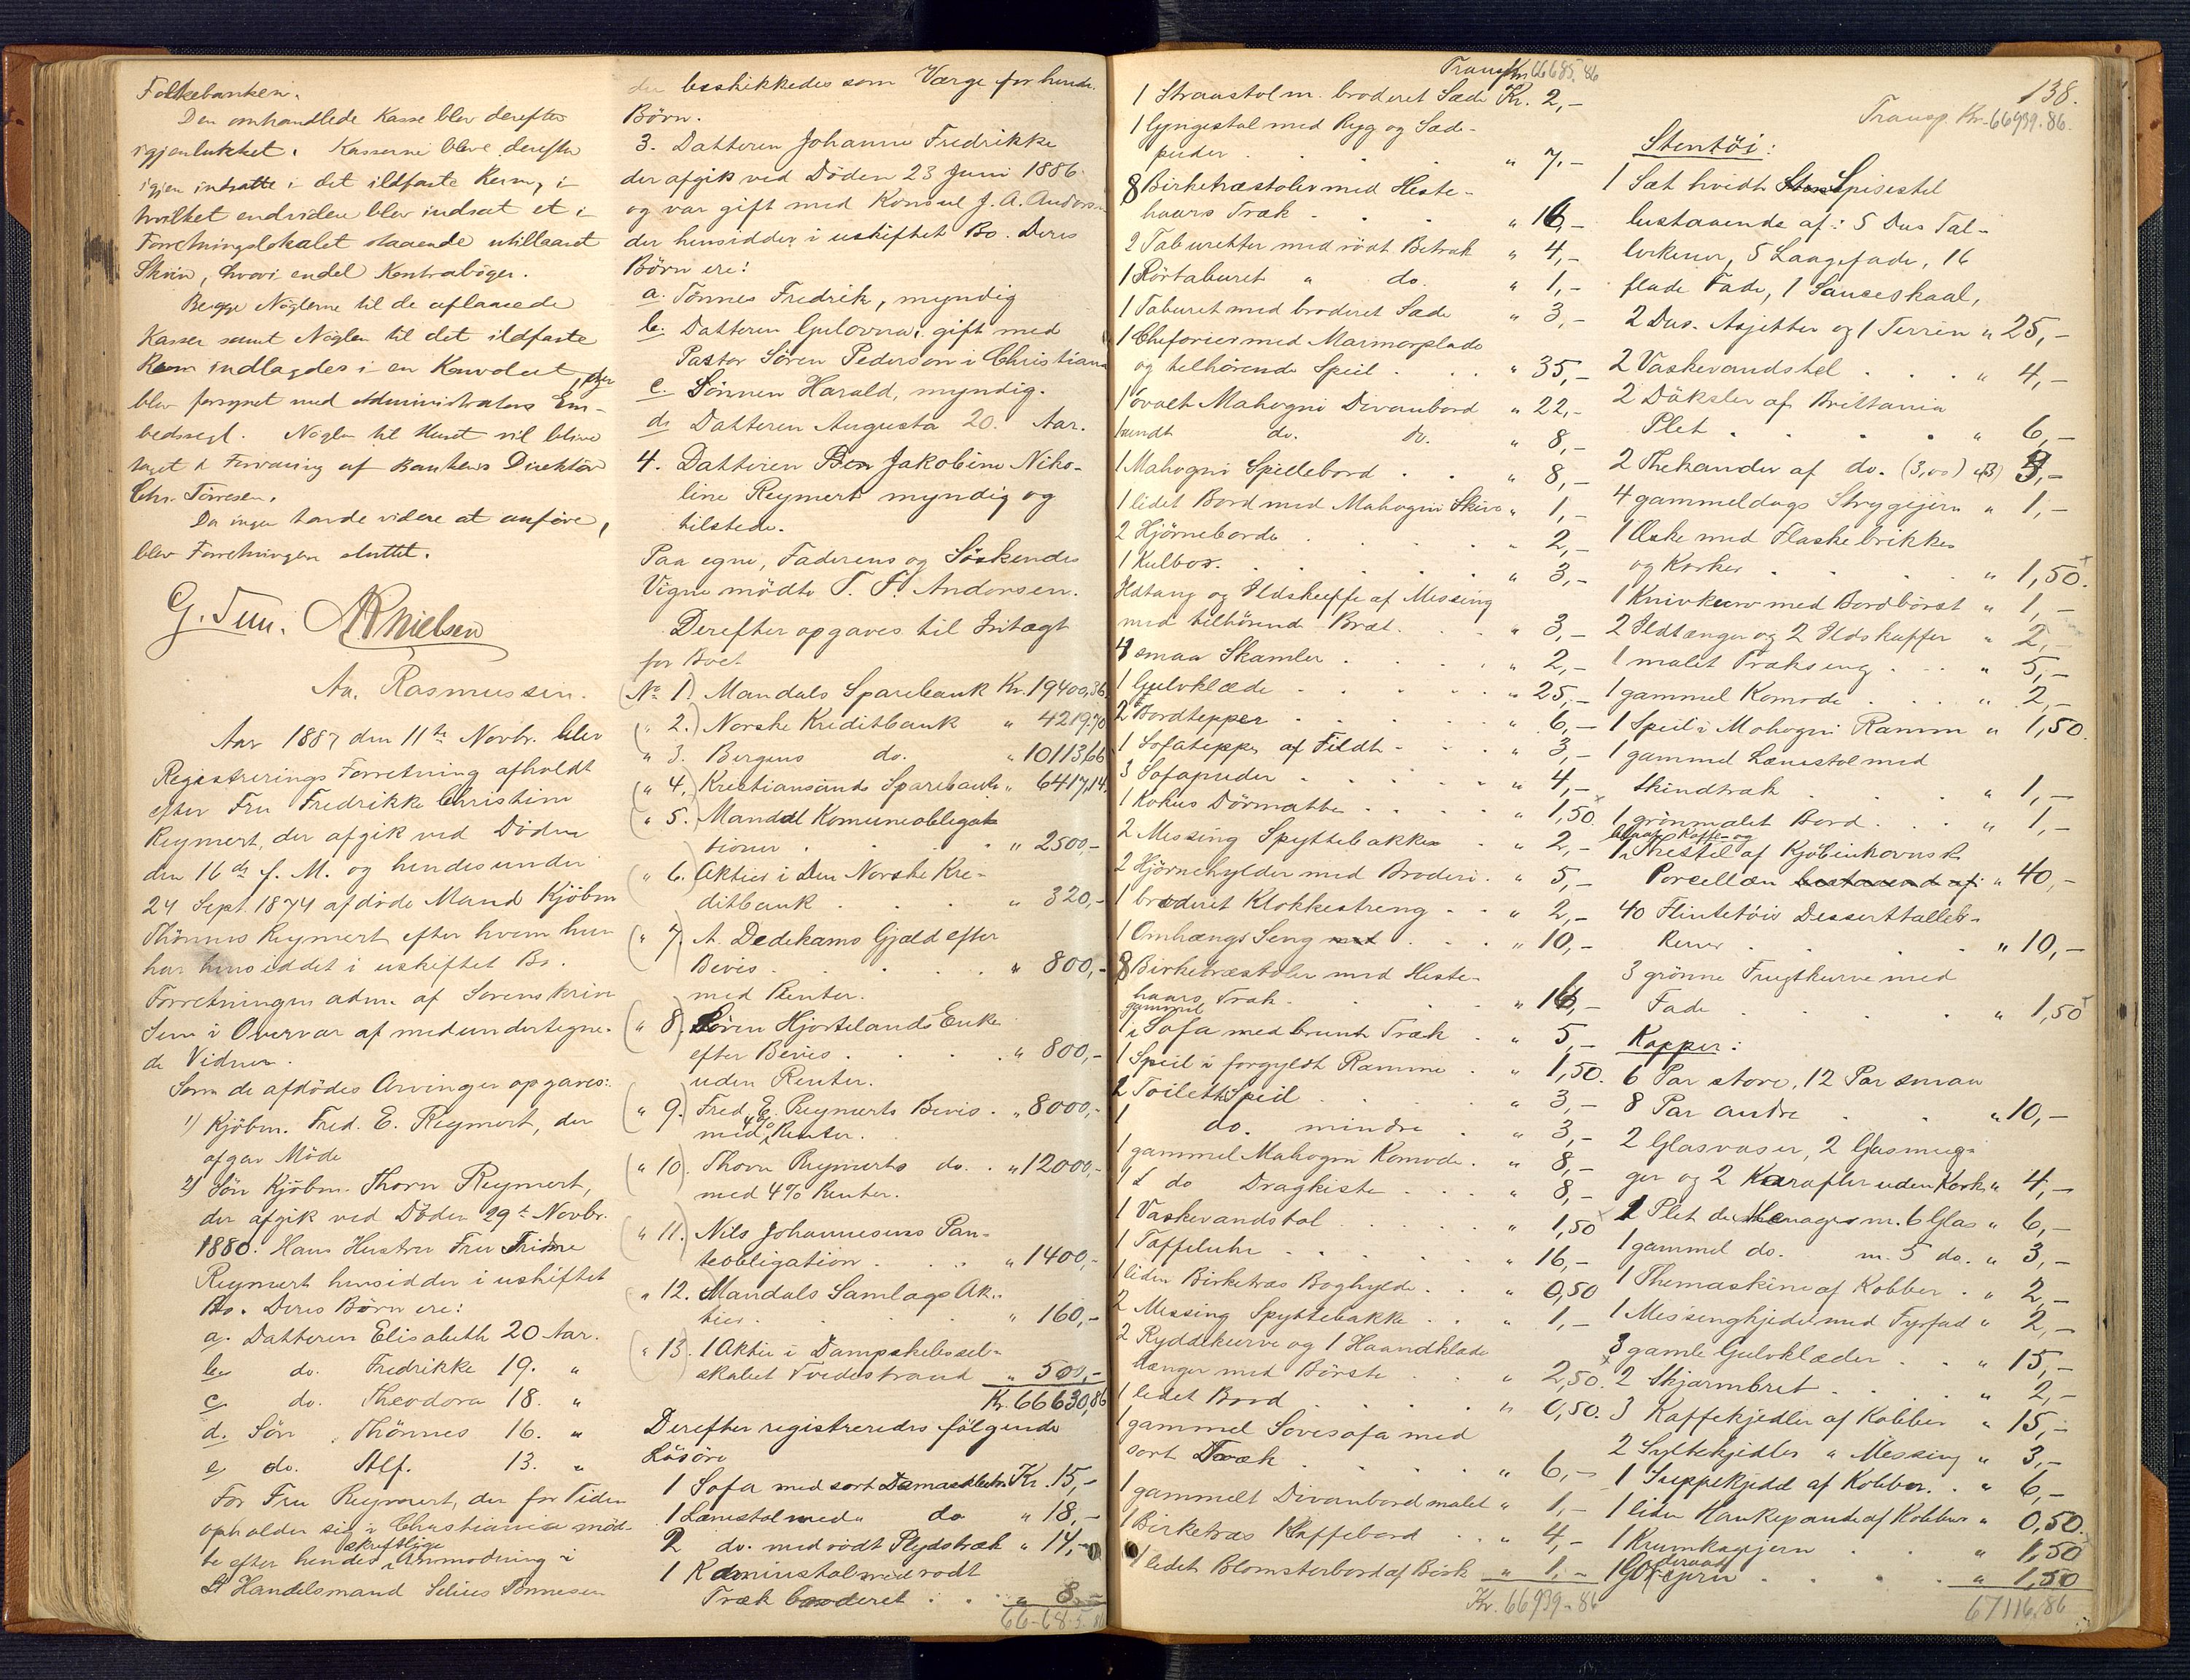 Folkebanken.
Den omhandlede Kasse blev derefter
igjenlukket. Kasserne bleve derefter
igjen indsatte i det ildfaste Rum, i
hvilket endvidere blev indsat et i
Forretningslokalet staaende uaflaaset
Skrin, hvori endel Kontrabøger.
Begge Nøglerne til de aflaasede
Kasser samt Nøglen til det ildfaste
Rum indlagdes i en Konvolut, der
blev forsynet med Administrators Em-
bedssegl. Nøglen til Huset vil blive
taget i Forvaring af Bankens Direktør
Chr. Tørresen.
Da ingen havde videre at anføre,
blev Forretningen sluttet.
G. Tuu. Nielsen
Aa. Rasmussen.
Aar 1887 den 11te Novbr. blev
Registrerings Forretning afholdt
efter Fru Fredrikke Christine
Reymert, der afgik ved Døden
den 16de f. M. og hendes under
24 Sept. 1874 afdøde Mand Kjöbm
Thönnes Reymert efter hvem hun
har hensiddet i uskiftet Bo.
Forretningen adm. af Sorenskrive
ren i Overvær af medundertegne-
de Vidner.
Som de afdødes Arvinger opgaves:
1) Kjöbm. Fred. E. Reymert, der
afgav Møde
2) Søn Kjöbm. Thorn Reymert,
der afgik ved Døden 29de Novbr.
1880. Hans Hustru Fru Trine
Reymert hensidder i uskiftet
Bo. Deres Børn ere:
a. Datteren Elisabeth 20 Aar.
b. do. Fredrikke 19. "
c. do. Theodora 18. "
d. Søn Thönnes 16. "
e. do. Alf. 13. "
For Fru Reymert, der for Tiden
opholder sig i Christiania mød-
te efter hendes skriftlige Anmodning i
St Handelsmand Selius Tønnesen
der beskikkedes som Værge for hendes
Børn.
3. Datteren Johanne Fredrikke
der afgik ved Döden 23 Juni 1886
og var gift med Konsul J. A. Andorsen
der hensidder i uskiftet Bo. Deres
Børn ere:
a. Tönnes Fredrik, myndig
b. Datteren Gulovna, gift med
Pastor Sören Pederson i Christiana
c. Sönnen Harald, myndig.
d. Datteren Augusta 20. Aar.
4. Datteren Jakobine Niko-
line Reymert myndig og
tilstede.
Paa egne, Faderens og Söskendes
Vegne mödte T. F. Andorsen.
Derefter opgaves til Indtægt
for Boet
No 1. Mandals Sparebank Kr. 19400,36
" 2. Norske Kreditbank " 4219,70
" 3. Bergens do. " 10113,66
" 4. Kristiansands Sparebank " 6417,14
" 5. Mandal Komuneobliga-
tioner . . " 2500,-
" 6. Aktier i Den Norske Kre-
ditbank . . " 320,-
" 7. A. Dedekams Gjæld efter
Bevis . . " 800,-
med Renter.
" 8. Sören Hjortelands Enke
efter Bevis . . " 800,-
uden Renter.
" 9. Fred. E. Reymerts Bevis . " 8000,-
med 4% Renter.
" 10. Thorn Reymerts do. . " 12000,-
med 4% Renter.
" 11. Nils Johannesens Pan-
teobligation . . " 1400,-
" 12. Mandals Samlags Ak-
tier . . " 160,-
" 13. 1 Aktie i Dampskibssel-
skabet Tvedestrand " 500,-
Kr. 66630,86
Derefter registreredes fölgende
Lösöre
1 Sofa med sort Damasktræk Kr. 15,-
1 Lænestol med " do " 18,-
2 do. med rödt Plydstræk " 14,-
1 Kaminstol med rödt
Træk broderet . . " 8,-
66-685.86
Transp. Kr. 66685.86
1 Straastol m. broderet Sæde Kr. 2,-
1 Gyngestol med Ryg og Sæde-
puder . . " 7,-
8 Birketræstoler med Heste-
haars Træk . . " 16,-
2 Taburetter med rödt Betræk " 4,-
1 Rörtaburet " do. " 1,-
1 Taburet med broderet Sæde " 3,-
1 Cheforier med Marmorplade
og tilhörende Speil . . " 35,-
1 ovalt Mahogni Divanbord " 22,-
1 rundt do. do. " 8,-
1 Mahogni Spillebord . . " 8,-
1 lidet Bord med Mahogni Skive " 1,-
2 Hjörneborde . . " 2,-
1 Kulbox . . " 3,-
Ildtang og Ildskuffe af Messing
med tilhörende Bræt . . " 3,-
4 smaa Skamler . . " 2,-
1 Gulvklæde . . " 25,-
2 Bordtepper . . " 6,-
1 Sofateppe af Fildt . . " 3,-
3 Sofapuder . . " 4,-
1 Kokus Dörmatte . . " 1,50.
2 Messing Spyttebakker . " 2,-
2 Hjörnehylder med Broderi . " 5,-
1 broderet Klokkestreng . . " 2,-
1 Omhængs Seng . . " 10,-
8 Birketræstoler med Heste-
haars Træk . . " 16,-
1 gammel Sofa med brunt Træk . " 5,-
1 Speil i forgyldt Ramme . " 1,50.
2 Toilet Speil . . " 3,-
1 do. mindre . " 3,-
1 gammel Mahogni Komode . " 8,-
1 do Dragkiste . . " 8,-
1 Vaskevandstol . . " 1,50
1 Taffeluhr . . " 16,-
1 liden Birketræs Boghylde . " 0,50
2 Messing Spyttebakke . . " 1,-
2 Ryddekurve og 1 Haandklæde
hænger med Börste . . " 2,50.
1 lidet Bord . . " 0,50.
1 gammel Sovesofa med
sort Træk . . " 6,-
1 gammelt Divanbord malet " 1,-
1 Birketræs Kaffebord . . " 4,-
1 lidet Blomsterbord af Birk " 1,-
Kr. 66939-86
138.
Transp. Kr. 66939.86.
Stentöi:
1 Sæt hvidt Spisestel
bestaaende af: 5 Dus Tal-
lerkener, 5 Laagefade, 16
flade Fade, 1 Sauceskaal,
2 Dus. Asjetter og 1 Terrin " 25,-
2 Vaskevandstel . . " 4,-
2 Däksler af Brittania
Plet . . " 6,-
2 Thekander af do. (3,00) 3,-
4 gammeldags Strygejern " 1,-
1 Æske med Flaskebrikker
og Korker . . " 1,50.
1 Knivkurv med Bordbörst " 1,-
2 Ildtænger og 2 Ildskuffer " 2,-
1 malet Trækseng . . " 5,-
1 gammel Komode . . " 2,-
1 Speil i Mahogni Ramm " 1,50.
1 gammel Lænestol med
Skindtræk . . " 1,-
1 grönmalet Bord . . " 1,-
1 Kaffe- og Thestel af Kjöbenhavnsk
Porcellæn bestaaend af: " 40,-
40 Flintetöis Desserttaller-
kener . . " 10,-
3 grönne Frugtkurve med
Fade . . " 1,50
Kopper:
6 Par store, 12 Par smaa
8 Par andre . . " 10,-
2 Glasvaser, 2 Glasmug-
ger og 2 Karafler uden Kork " 4,-
1 Plet de Menage m. 6 Glas " 6,-
1 gammel do. m. 5 do. " 3,-
1 Themaskine af Kobber . " 2,-
1 Messingkjedel med Fyrfad " 2,-
3 gamle Gulvklæder . . " 15,-
2 Skjærmbret . . " 2,-
3 Kaffekjedler af Kobber " 15,-
2 Syltekjedler " Messing " 3,-
1 Suppekjedel af Kobber. . " 6,-
1 liden Hankepande af Kobber " 0,50.
1 Krumkagejern . . " 1,50
1 Goderaadjern . . " 1,50
67116,86